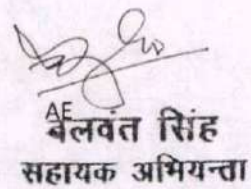 AE
बलवंत सिंह
सहायक अभियन्ता